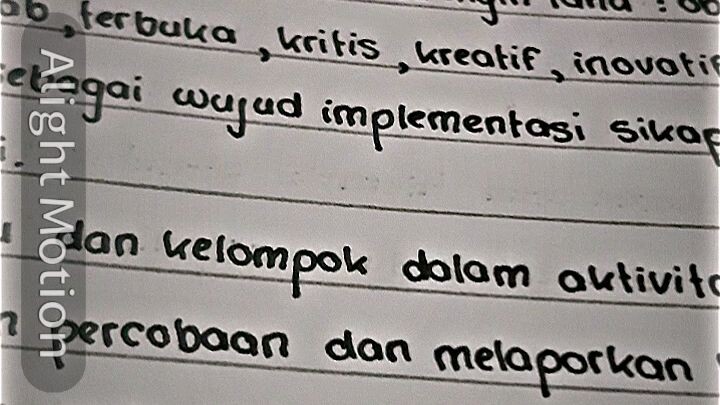 , terbuka, kritis, kreatif, inovatif
sebagai wujud implementasi sikap
dan kelompok dalam
percobaan dan melaporkan
Alight Motion